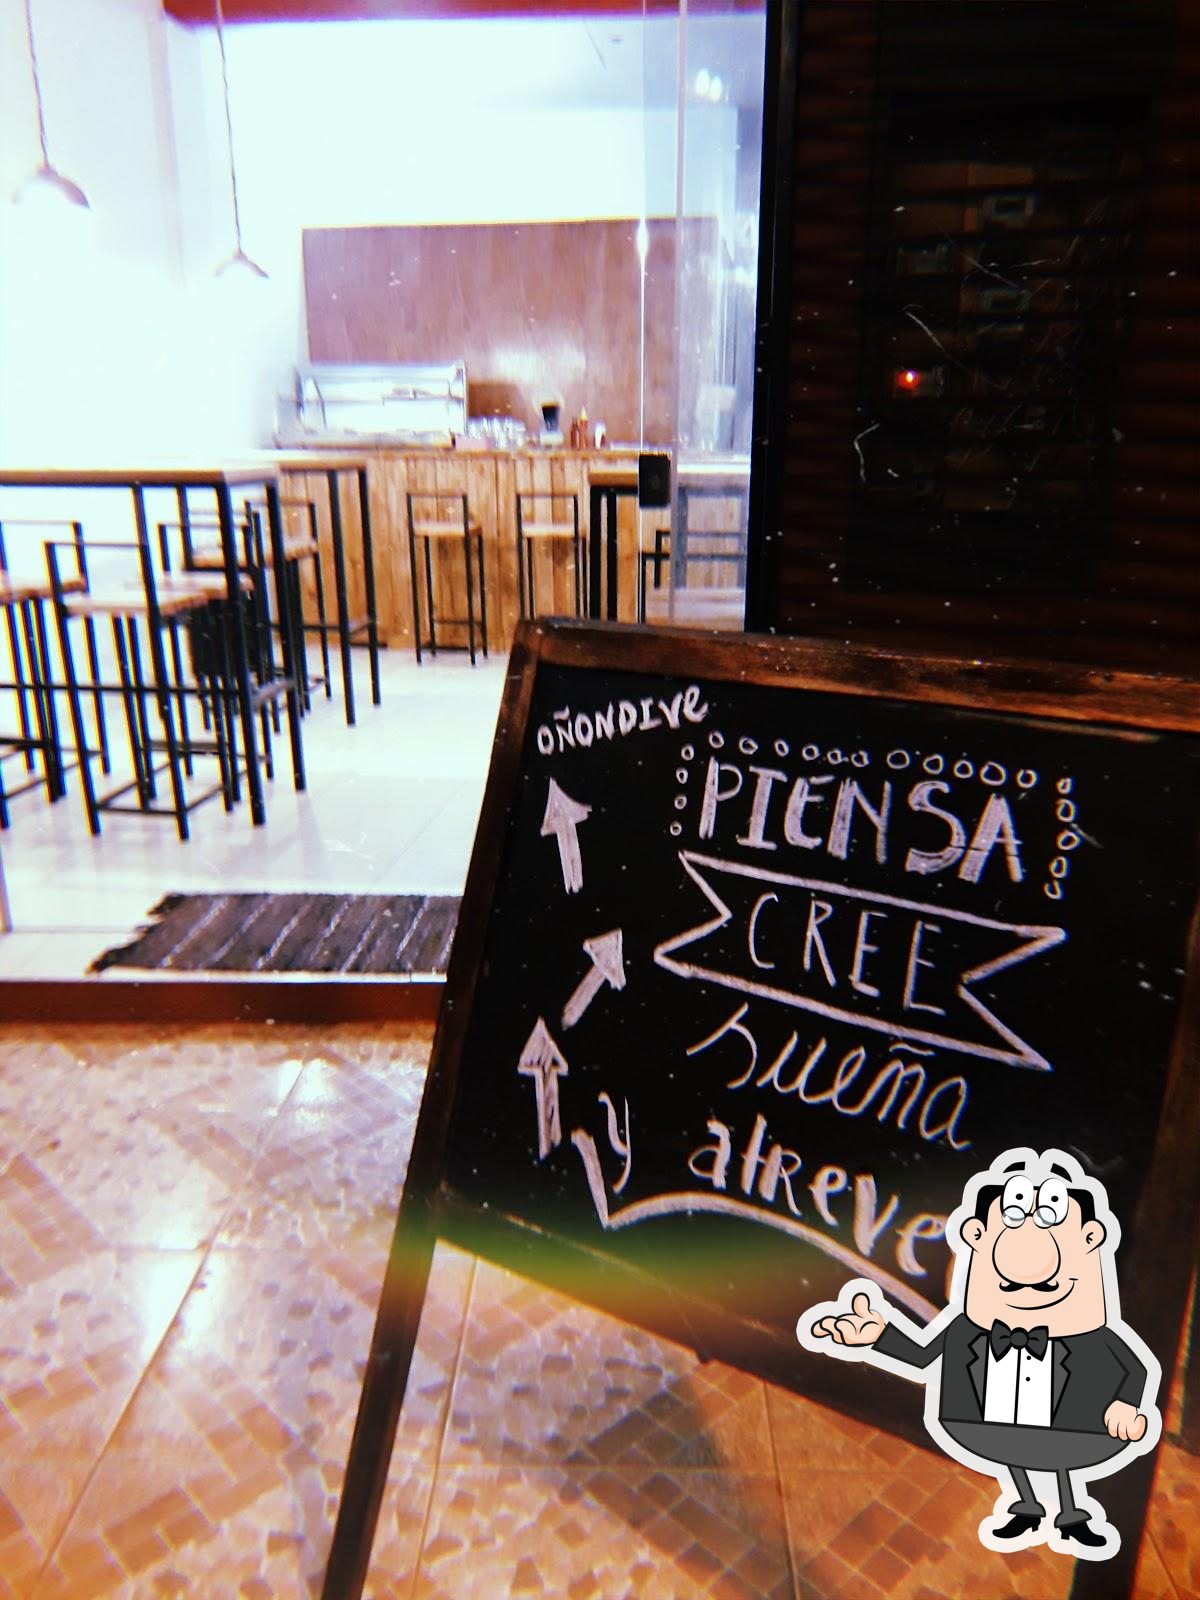 OÑONDIVE
PIENSA
CREE
sueña
y atreve